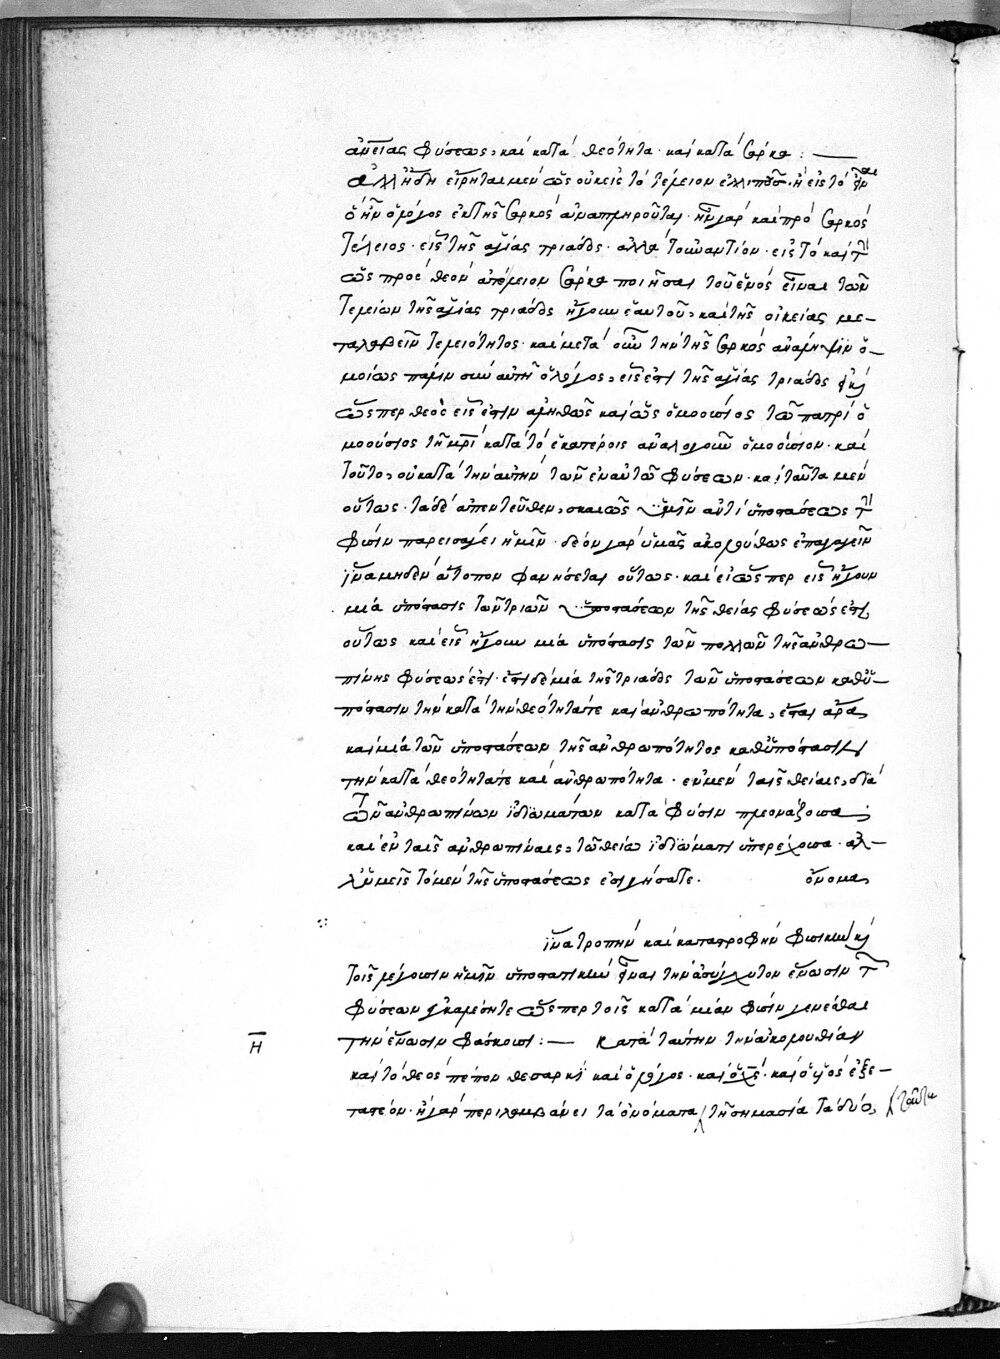 ἁγίας φύσεως, καὶ κατὰ θεότητα· καὶ κατὰ σάρκα :—
ἀλλ' ἤδη εἴρηται μὲν ὡς οὐκ εἰς τὸ τέλειον ἐλλιποῦς· ἢ εἰς τὸ εἶναι
ὃ ἦν ὁ λόγος ἐκ τῆς σαρκὸς ἀναπληροῦται· ἦν γὰρ καὶ πρὸ σαρκὸς
τέλειος· εἷς τῆς ἁγίας τριάδος· ἀλλὰ τοὐναντίον· εἰς τὸ καὶ τὴν
ὡς πρὸς θεὸν ἀτέλειον σάρκα ποιῆσαι τοῦ ἑνὸς εἶναι τῶν
τελείων τῆς ἁγίας τριάδος ἤγουν ἑαυτοῦ, καὶ τῆς οἰκείας με-
ταλαβεῖν τελειότητος· καὶ μετὰ οὖν τὴν τῆς σαρκὸς ἀνάληψιν ὁ-
μοίως πάλιν σὺν αὐτῇ ὁ λόγος, εἷς ἐστὶ τῆς ἁγίας τριάδος
ὥσπερ θεὸς εἷς ἐστὶν ἀληθῶς καὶ ὡς ὁμοούσιος τῷ πατρὶ ὁ
μοούσιος τῇ μητρὶ κατὰ τὸ ἑκατέροις ἀναλογοῦν ὁμοούσιον· καὶ
τοῦτο, οὐ κατὰ τὴν αὐτὴν τῶν ἐν αὐτῷ φύσεων· καὶ ταῦτα μὲν
οὕτως· τὰ δὲ ἀπεντεῦθεν, σκαιῶς ὑμῖν ἀντὶ ὑποστάσεως τὴν
φύσιν παρεισάγει ἡμῖν· δέον γὰρ ὑμᾶς ἀκολούθως ἐπαγαγεῖν
ἵνα μηδὲν ἄτοπον φανήσεται οὕτως· καὶ εἰ ὥσπερ εἷς ἤγουν
μία ὑπόστασις τῶν τριῶν ὑποστάσεων τῆς θείας φύσεώς ἐστιν
οὕτως καὶ εἷς ἤγουν μία ὑπόστασις τῶν πολλῶν τῆς ἀνθρω-
πίνης φύσεώς ἐστι· ἔστι δὲ μία τῆς τριάδος τῶν ὑποστάσεων καθ' ὑ-
πόστασιν τὴν κατὰ τὴν θεότητά τε καὶ ἀνθρωπότητα, ἔσται ἄρα
καὶ μία τῶν ὑποστάσεων τῆς ἀνθρωπότητος καθ' ὑπόστασιν
τὴν κατὰ θεότητά τε καὶ ἀνθρωπότητα· ἐν μὲν ταῖς θείαις, διὰ
τῶν ἀνθρωπίνων ἰδιωμάτων κατὰ φύσιν πλεονάζουσα
καὶ ἐν ταῖς ἀνθρωπίναις, τῷ θείῳ ἰδιώματι ὑπερέχουσα· ἀλ-
λ' ὑμεῖς τὸ μὲν τῆς ὑποστάσεως ἐσιγήσατε· ὄνομα
ἵνα τροπὴν καὶ καταστροφὴν φυσικὴν καὶ
τοῖς λέγουσιν ἡμῖν ὑποστατικὴν εἶναι τὴν ἀσύγχυτον ἕνωσιν τῶν
φύσεων ἐγκαλέσητε ὥσπερ τοῖς κατὰ μίαν φύσιν γενέσθαι
τὴν ἕνωσιν φάσκουσι :— Κατὰ ταύτην τὴν ἀκολουθίαν
Η
καὶ τὸ θεὸς πέπονθε σαρκὶ καὶ ὁ λόγος· καὶ ὁ χς· καὶ ὁ υἱός ἐξε-
ταστέον· ἢ γὰρ περιλαμβάνει τὰ ὀνόματα τῇ σημασίᾳ τὰ δύο, ταῦτα